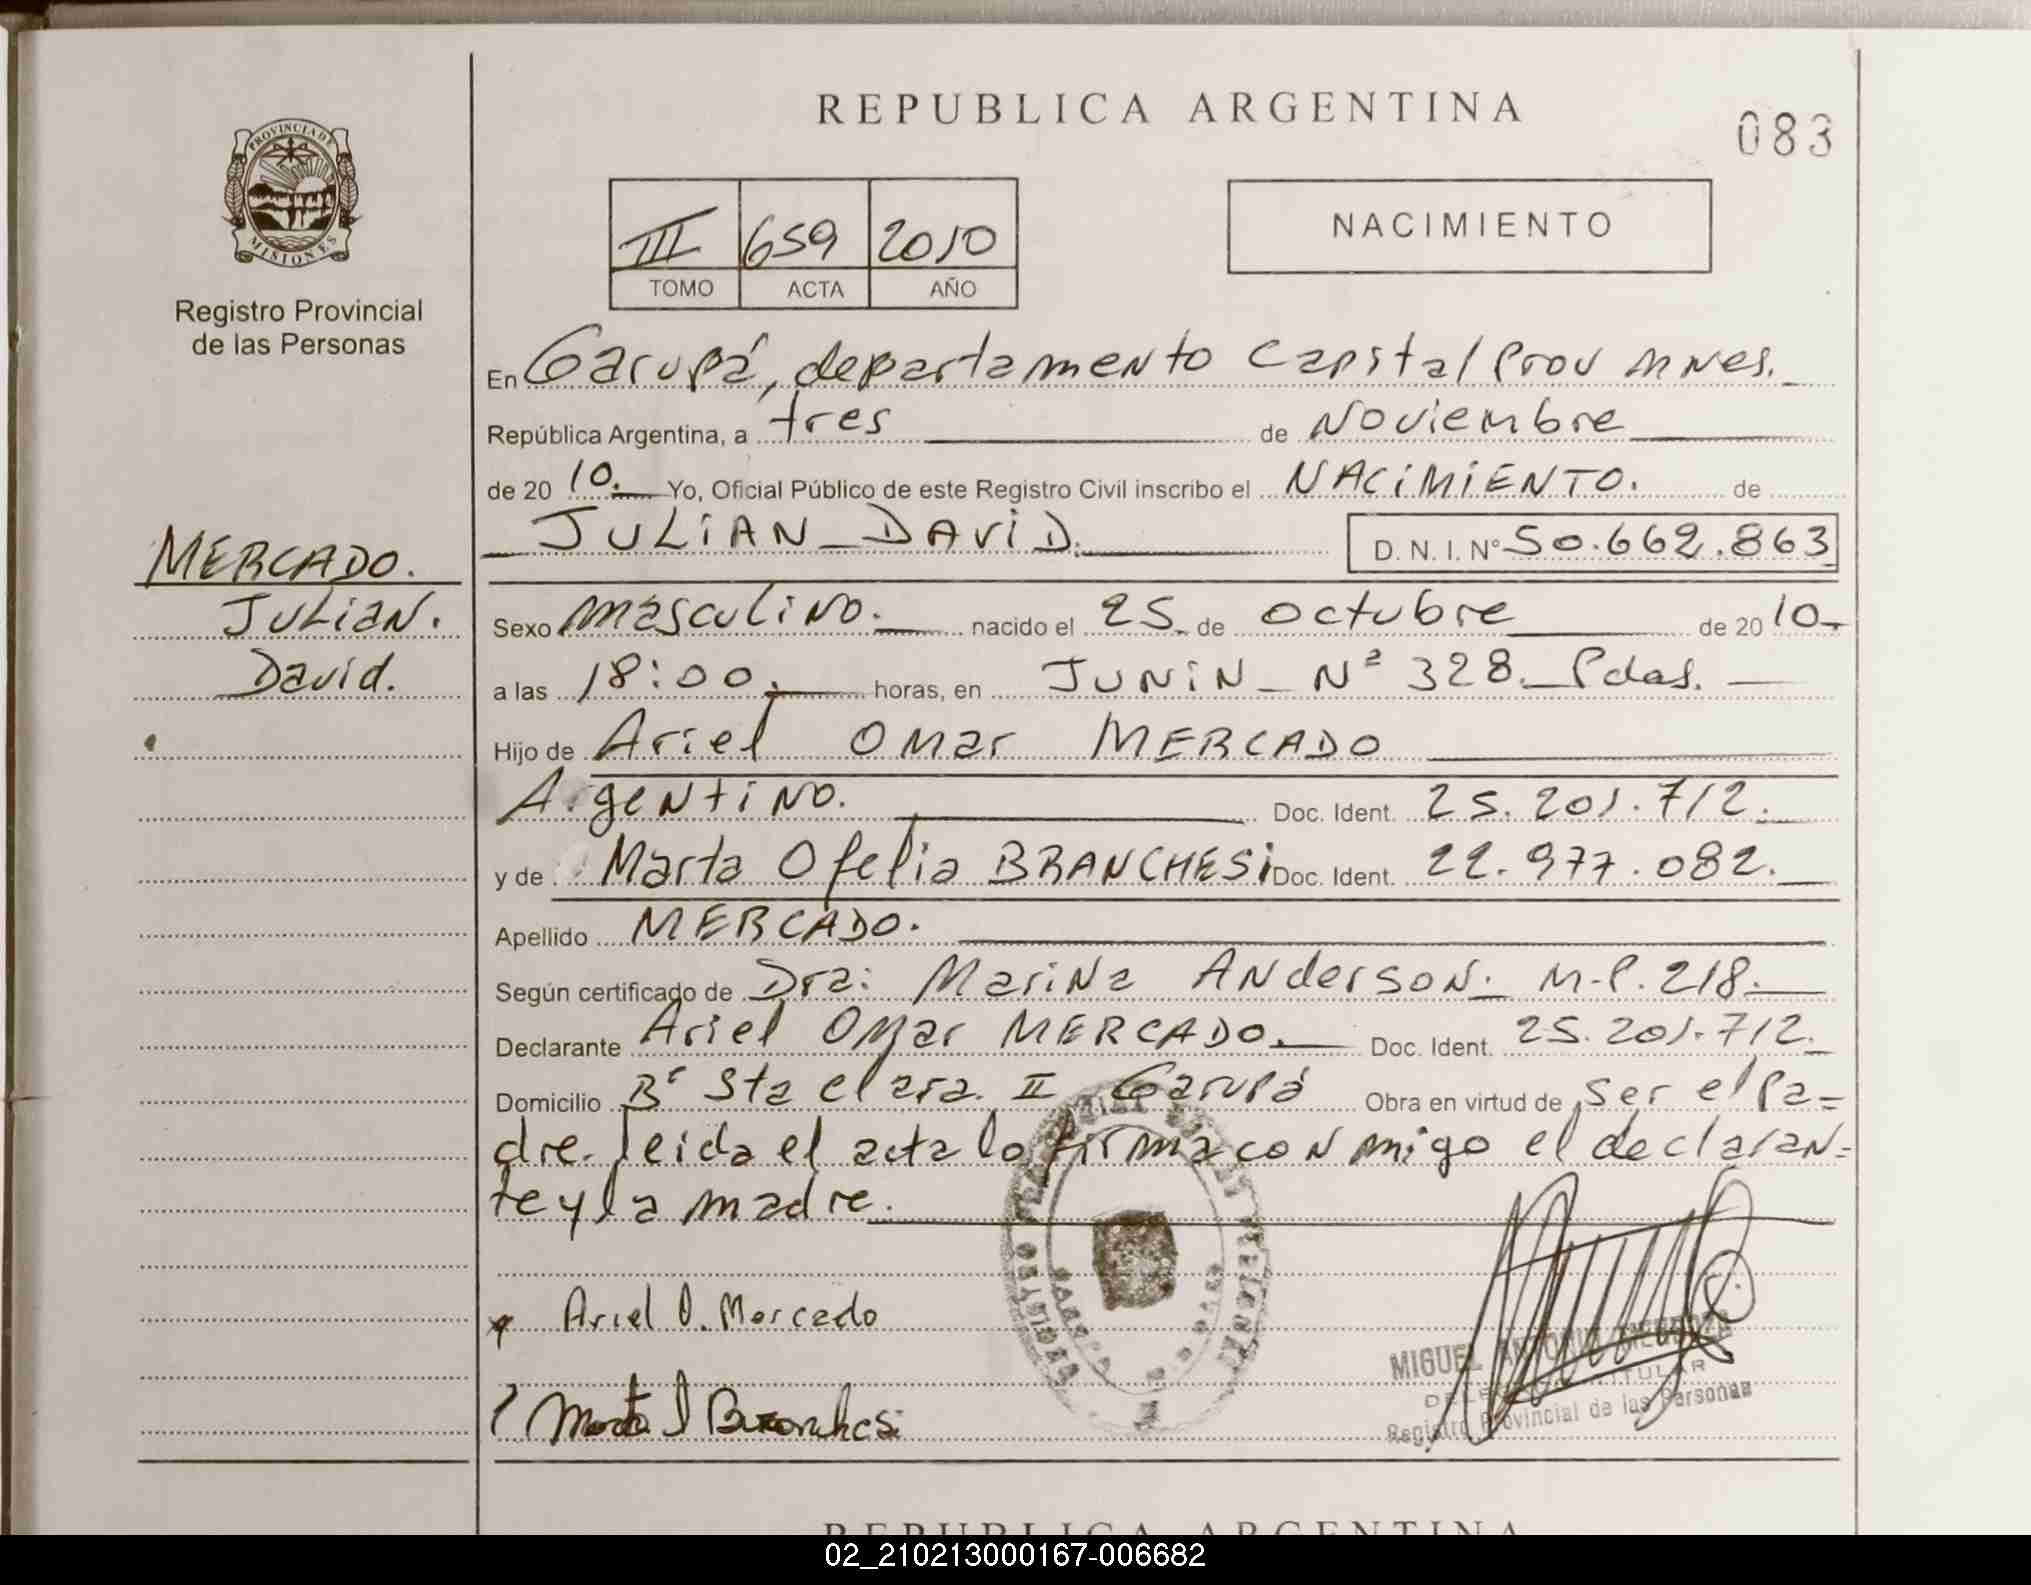 REPUBLICA ARGENTINA
083
PROVINCIA DE
MISIONES
Registro Provincial
de las Personas
III 659 2010
TOMO ACTA AÑO
NACIMIENTO
En Garupá, departamento Capital Prov Mnes.
República Argentina, a tres de Noviembre
de 20 10. Yo, Oficial Público de este Registro Civil inscribo el NACIMIENTO. de
JULIAN DAVID. D. N. I. Nº 50.662.863
MERCADO.
Julian.
David.
Sexo masculino. nacido el 25 de octubre de 20 10
a las 18:00 horas, en JUNIN Nº 328. Pdas.
Hijo de Ariel Omar MERCADO
Argentino. Doc. Ident. 25.201.712.
y de Marta Ofelia BRANCHESI Doc. Ident. 22.977.082.
Apellido MERCADO.
Según certificado de Dra: Marina Anderson. M.P. 218.
Declarante Ariel Omar MERCADO. Doc. Ident. 25.201.712.
Domicilio Bº Sta clara II Garupá Obra en virtud de ser el pa=
dre. leida el acta lo firma conmigo el declaran=
te y la madre.
Ariel O. Mercado
Marta Branchesi
MIGUEL ANTONIO MENDOZA
DELEGADO TITULAR
Registro Provincial de las Personas
REPUBLICA ARGENTINA
02_210213000167-006682